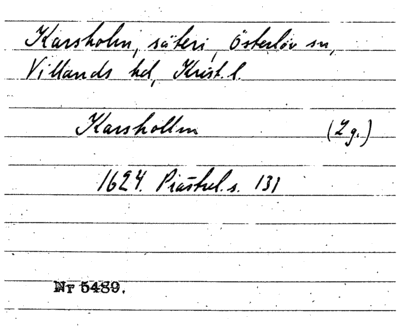 Karsholm, säteri, Österlöv sn,
Villands hd, Krist. l.
Karshollm (Lg.)
1624. Priästrel. s. 131
Nr 5489.